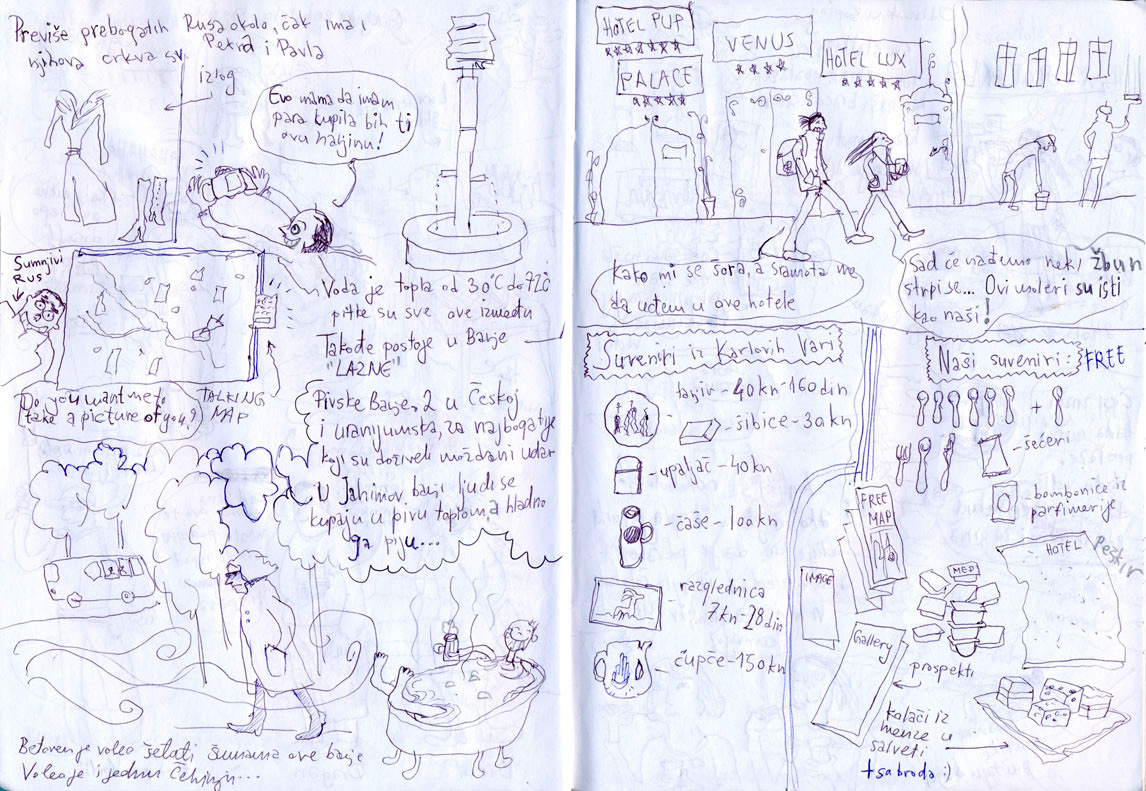 Previše prebogatih Rusa okolo, čak ima i
njihova crkva sv. Petra i Pavla
izlog
Evo mama da imam
para kupila bih ti
ovu haljinu!
Sumnjivi
RUS
Do you want me to
take a picture of you?
TALKING
MAP
Voda je topla od 30°C do 72°C
pitke su sve ove između
Takođe postoje u Banje
"LAZNE"
Pivske Banje, 2 u Češkoj
i uranijumska, za najbogatije
koji su doživeli moždani udar
U Jahimov, banji ljudi se
kupaju u pivu toplom, a hladno
ga piju...
Betoven je voleo šetati šumama ove banje
Voleo je i jednu Čehinju...
HOTEL PUP
PALACE
VENUS
HOTEL LUX
Kako mi se šora, a sramota me
da uđem u ove hotele
Sad će nađemo neki žbun
strpi se... Ovi moleri su isti
kao naši!
Suveniri iz Karlovih Vari
tanjir - 40kn - 160 din
šibice - 30kn
upaljač - 40kn
čaše - 100kn
razglednica
7kn - 28 din
čupče - 150kn
Naši suveniri: FREE
+
šećeri
bombonice iz
parfimerije
FREE
MAP
IMAGE
MED
HOTEL
Peškir
Gallery
prospekti
kolači iz
menze u
salveti
+ sa broda :)